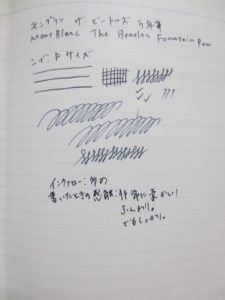 モンブラン ザ・ビートルズ 万年筆
MontBlanc The Beatles Fountain Pen
ニブ：Fサイズ
インクフロー：多め
書いたときの感触：非常に柔かい！
ふんわり。
でもしっかり。